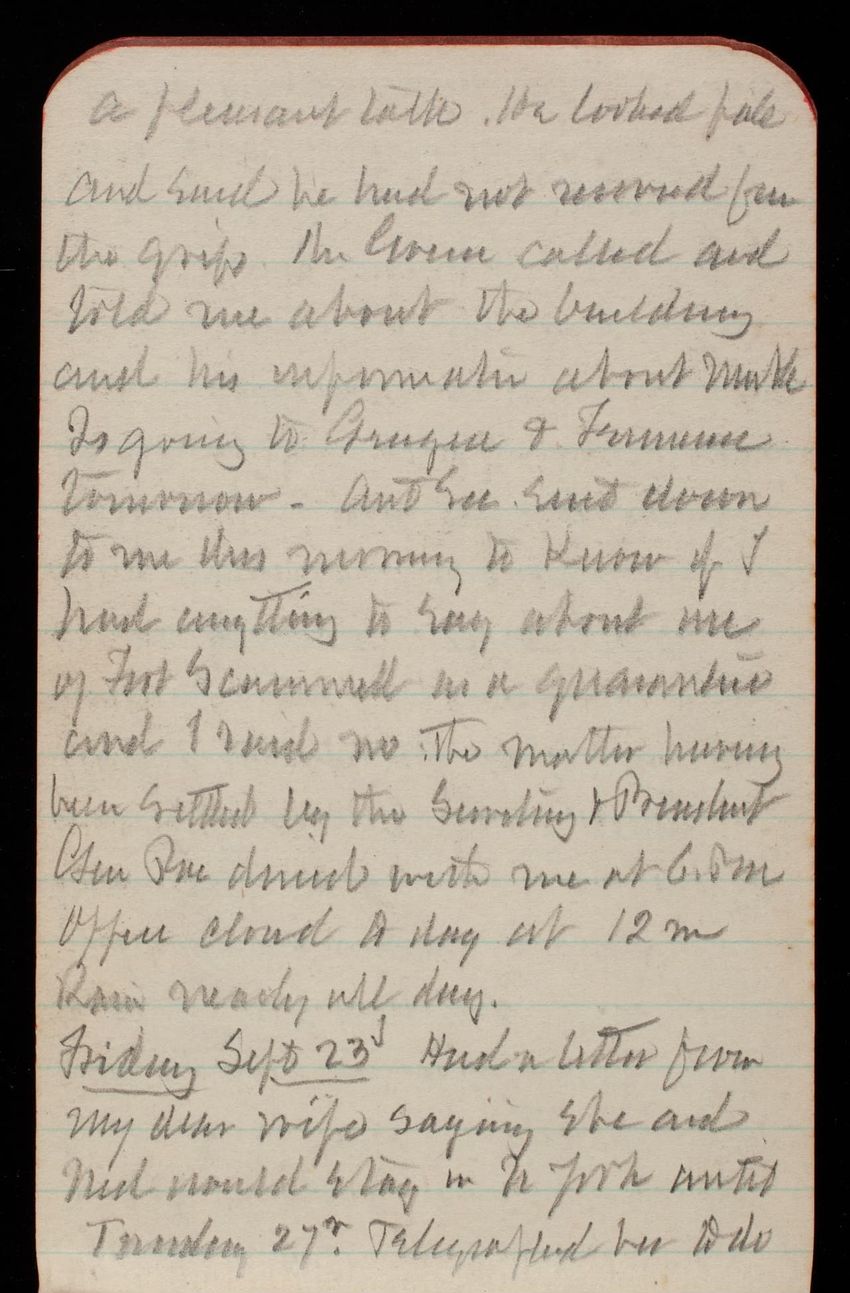 a pleasant talk. He looked pale
and said he had not recovered from
the grip. Mr Greene called and
told me about the building
and his information about
Is going to &
tomorrow - Act Sec sent down
to me this morning to know if I
had anything to say about use
of Fort Scammell as a quarantine
and I said no. The matter having
been settled by the Secretary & President
Gen dined with me at 6. P m
Office closed to day at 12 m
Rain nearly all day.
Friday Sept 23d Had a letter from
my dear wife saying she and
Ned would stay in N York until
Tuesday 27th. Telegrafed her to do